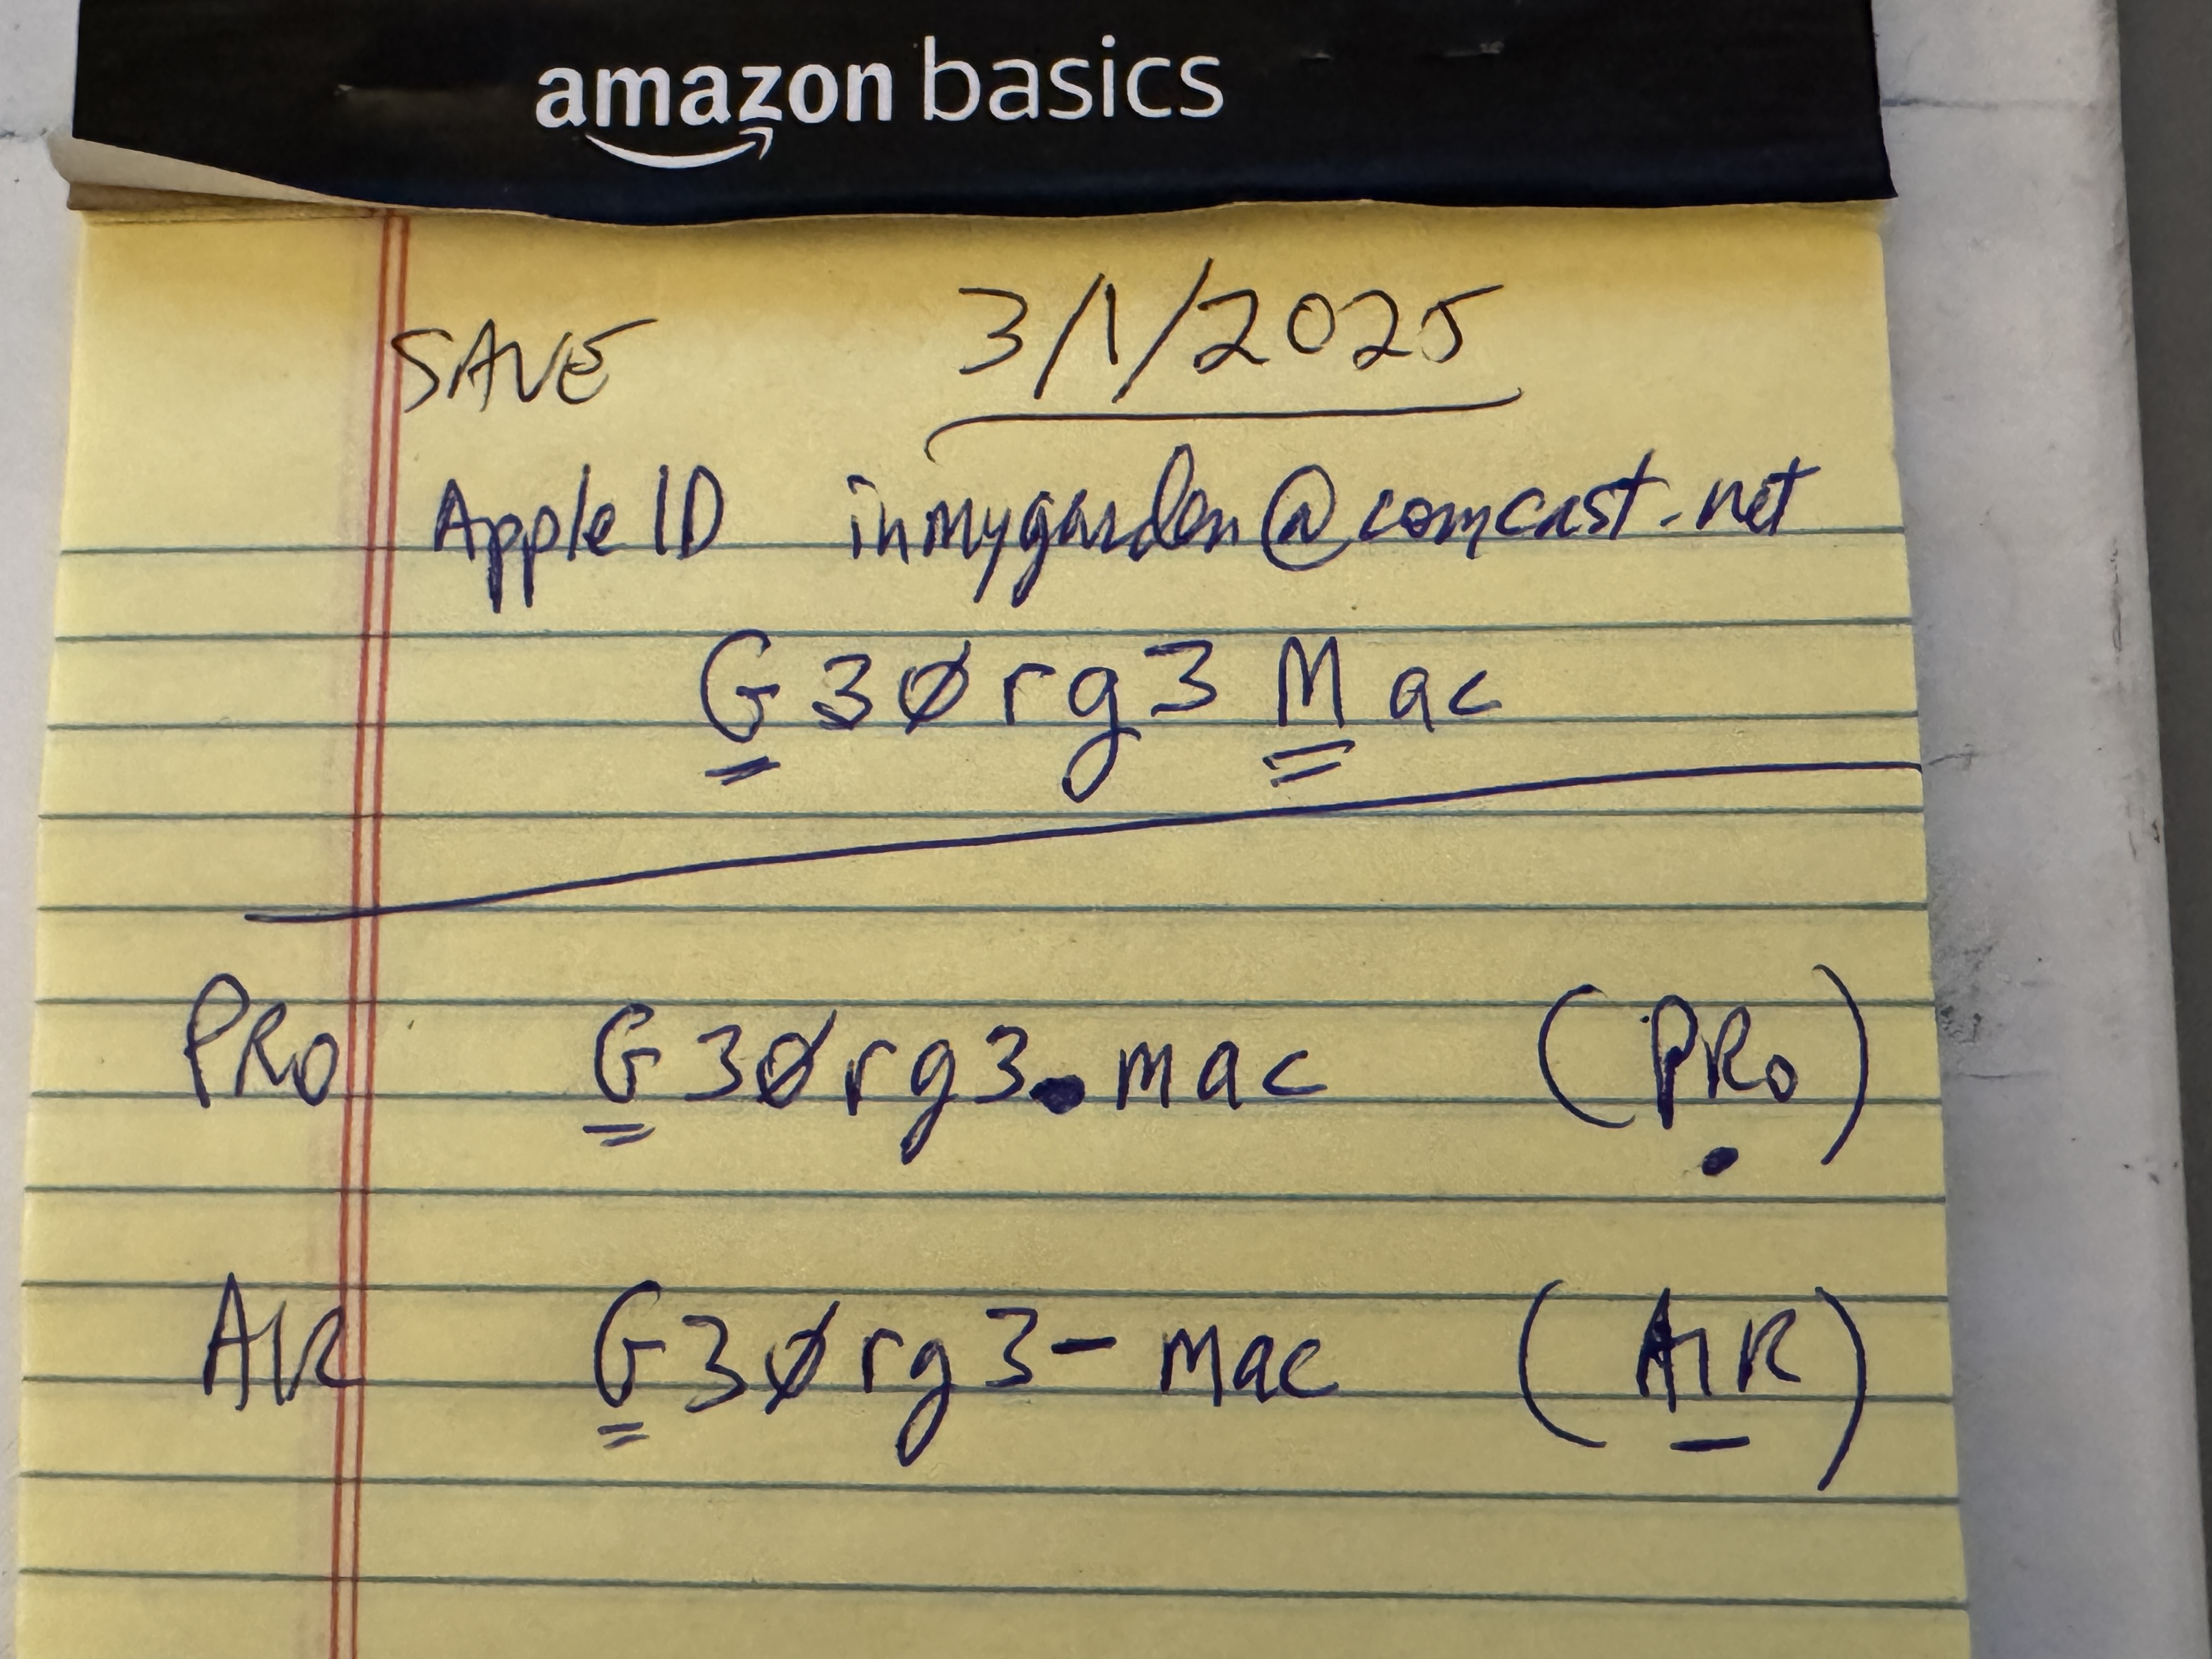 amazon basics
SAVE 3/1/2025
Apple ID inmygarden@comcast.net
G3Ørg3Mac
PRO G3Ørg3.mac (PRO)
AIR G3Ørg3-mac (AIR)